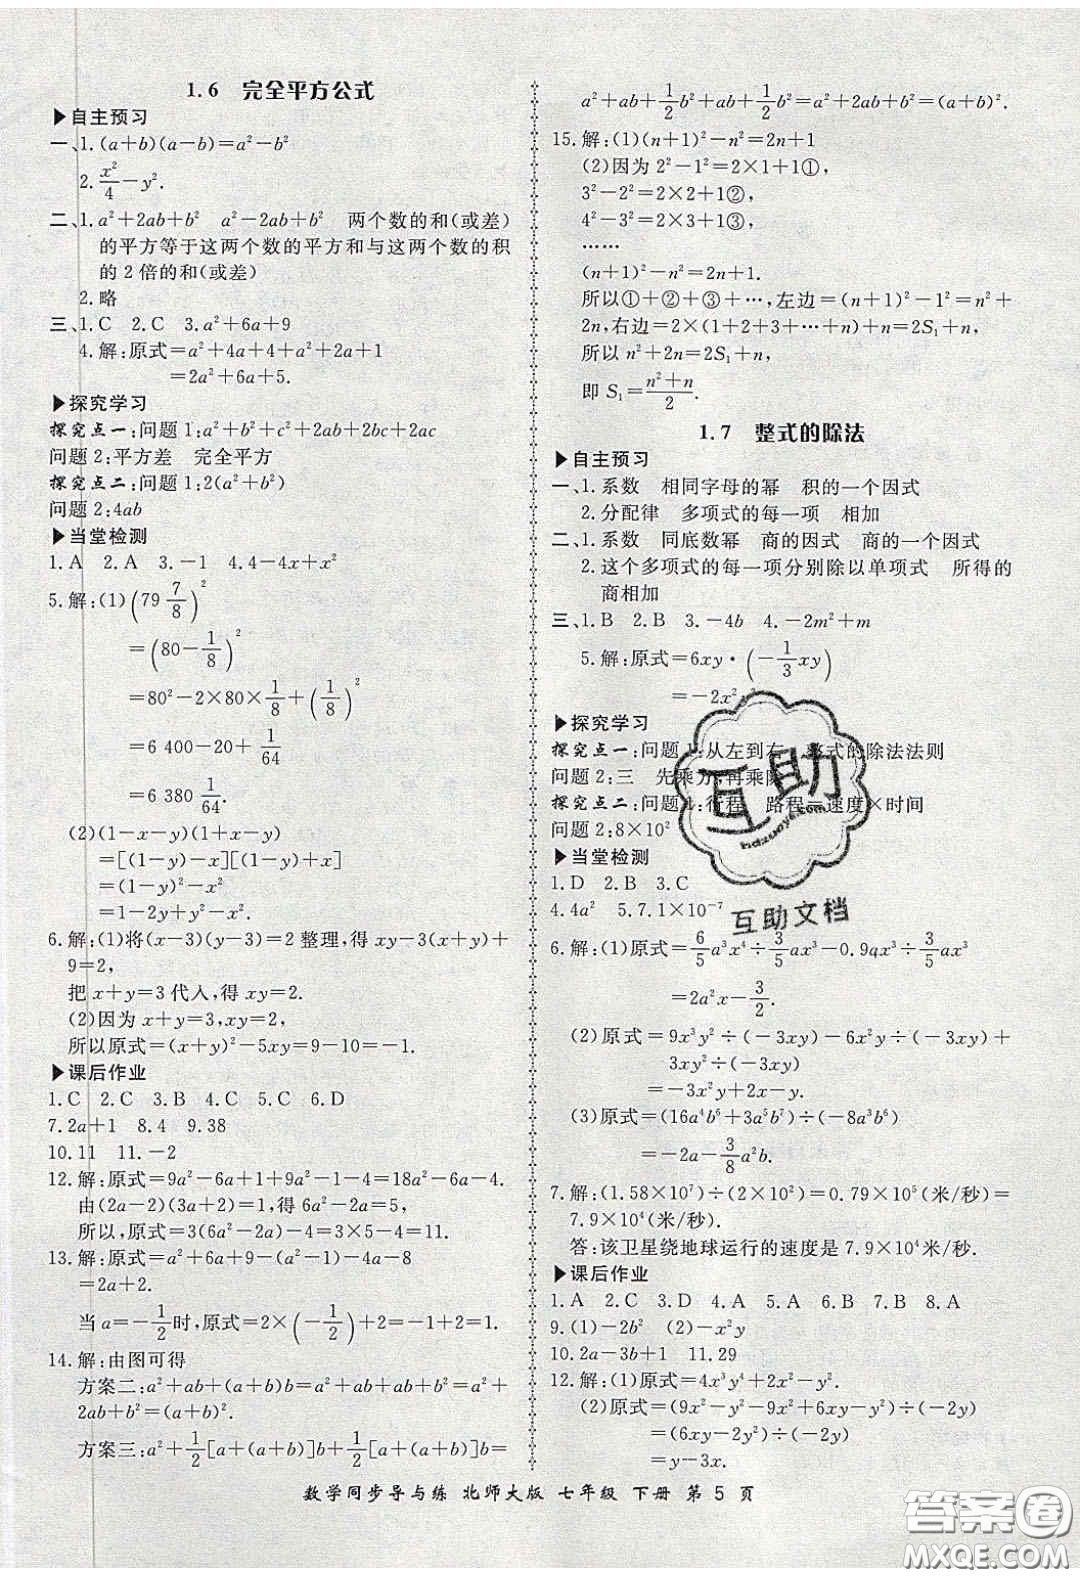 1.6 完全平方公式
▶自主预习
一、1.(a+b)(a-b)=a²-b²
2. x²/4-y².
二、1.a²+2ab+b² a²-2ab+b² 两个数的和(或差)
的平方等于这两个数的平方和与这两个数的积
的2倍的和(或差)
2.略
三、1.C 2.C 3.a²+6a+9
4.解:原式=a²+4a+4+a²+2a+1
=2a²+6a+5.
▶探究学习
探究点一:问题1:a²+b²+c²+2ab+2bc+2ac
问题2:平方差 完全平方
探究点二:问题1:2(a²+b²)
问题2:4ab
▶当堂检测
1.A 2.A 3.-1 4.4-4x+x²
5.解:(1)(79 7/8)²
=(80-1/8)²
=80²-2×80×1/8+(1/8)²
=6 400-20+1/64
=6 380 1/64.
(2)(1-x-y)(1-y+x)
=[(1-y)-x][(1-y)+x]
=(1-y)²-x²
=1-2y+y²-x².
6.解:(1)将(x-3)(y-3)=2整理,得xy-3(x+y)+
9=2,
把x+y=3代入,得xy=2.
(2)因为x+y=3,xy=2,
所以原式=(x+y)²-5xy=9-10=-1.
▶课后作业
1.C 2.C 3.B 4.C 5.C 6.D
7.2a+1 8.4 9.38
10.11 11.-2
12.解:原式=9a²-6a+1+9a²-1-4=18a²-6a-4.
由(2a-2)(3a+2)=1,得6a²-2a=5,
所以,原式=3(6a²-2a)-4=3×5-4=11.
13.解:原式=a²+6a+9-(a²-1)-4a-8
=2a+2.
当a=-1/2时,原式=2×(-1/2)+2=-1+2=1.
14.解:由图可得
方案二:a²+ab+(a+b)b=a²+ab+ab+b²=a²+
2ab+b²=(a+b)².
方案三:a²+1/2[a+(a+b)]b+1/2[a+(a+b)]b=
a²+ab+1/2b²+ab+1/2b²=a²+2ab+b²=(a+b)².
15.解:(1)(n+1)²-n²=2n+1
(2)因为2²-1²=2×1+1①,
3²-2²=2×2+1②,
4²-3²=2×3+1③,
……
(n+1)²-n²=2n+1.
所以①+②+③+…,左边=(n+1)²-1²=n²+
2n,右边=2×(1+2+3+…+n)+n=2S₁+n,
所以n²+2n=2S₁+n,
即S₁=n²+n/2.
1.7 整式的除法
▶自主预习
一、1.系数 相同字母的幂 积的一个因式
2.分配律 多项式的每一项 相加
二、1.系数 同底数幂 商的因式 商的一个因式
2.这个多项式的每一项分别除以单项式 所得的
商相加
三、1.B 2.B 3.-4b 4.-2m²+m
5.解:原式=6xy·(-1/3xy)
=-2x²y².
▶探究学习
探究点一:问题1:从左到右 整式的除法法则
问题2:三 先乘方,再乘除
探究点二:问题1:行程 路程=速度×时间
问题2:8×10²
▶当堂检测
1.D 2.B 3.C
4.4a² 5.7.1×10⁻⁷
6.解:(1)原式=6/5a³x⁴÷3/5ax³-0.9ax³÷3/5ax³
=2a²x-3/2.
(2)原式=9x³y²÷(-3xy)-6x²y÷(-3xy)+
3xy²÷(-3xy)
=-3x²y+2x-y.
(3)原式=(16a⁴b⁶+3a⁵b⁷)÷(-8a³b⁶)
=-2a-3/8a²b.
7.解:(1.58×10⁷)÷(2×10²)=0.79×10⁵(米/秒)=
7.9×10⁴(米/秒).
答:该卫星绕地球运行的速度是7.9×10⁴米/秒.
▶课后作业
1.A 2.C 3.D 4.A 5.A 6.A 7.B 8.A
9.(1)-2b² (2)-x²y
10.2a-3b+1 11.29
12.解:(1)原式=4x³y⁴+2x²-y².
(2)原式=(9x²-y²-9x²+6xy-y²)÷(-2y)
=(6xy-2y²)÷(-2y)
=y-3x.
数学同步导与练 北师大版 七年级 下册 第5页
互助
hdzuoye.com
互助文档
答案圈
MXQE.COM